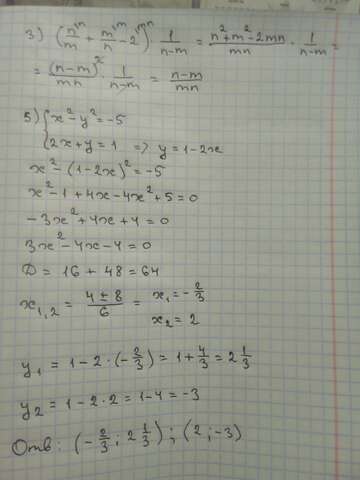 3) (n/m^{\n} + m/n^{\m} - 2^{\mn}) · 1/(n-m) = (n²+m²-2mn)/(mn) · 1/(n-m) =
= (n-m)²/(mn) · 1/(n-m) = (n-m)/(mn)
5) { x²-y²=-5
{ 2x+y=1 => y=1-2x
x²-(1-2x)²=-5
x²-1+4x-4x²+5=0
-3x²+4x+4=0
3x²-4x-4=0
D=16+48=64
x₁,₂ = (4±8)/6 = x₁=-2/3
x₂=2
y₁ = 1-2·(-2/3) = 1+4/3 = 2 1/3
y₂ = 1-2·2 = 1-4 = -3
Отв: (-2/3; 2 1/3); (2; -3)